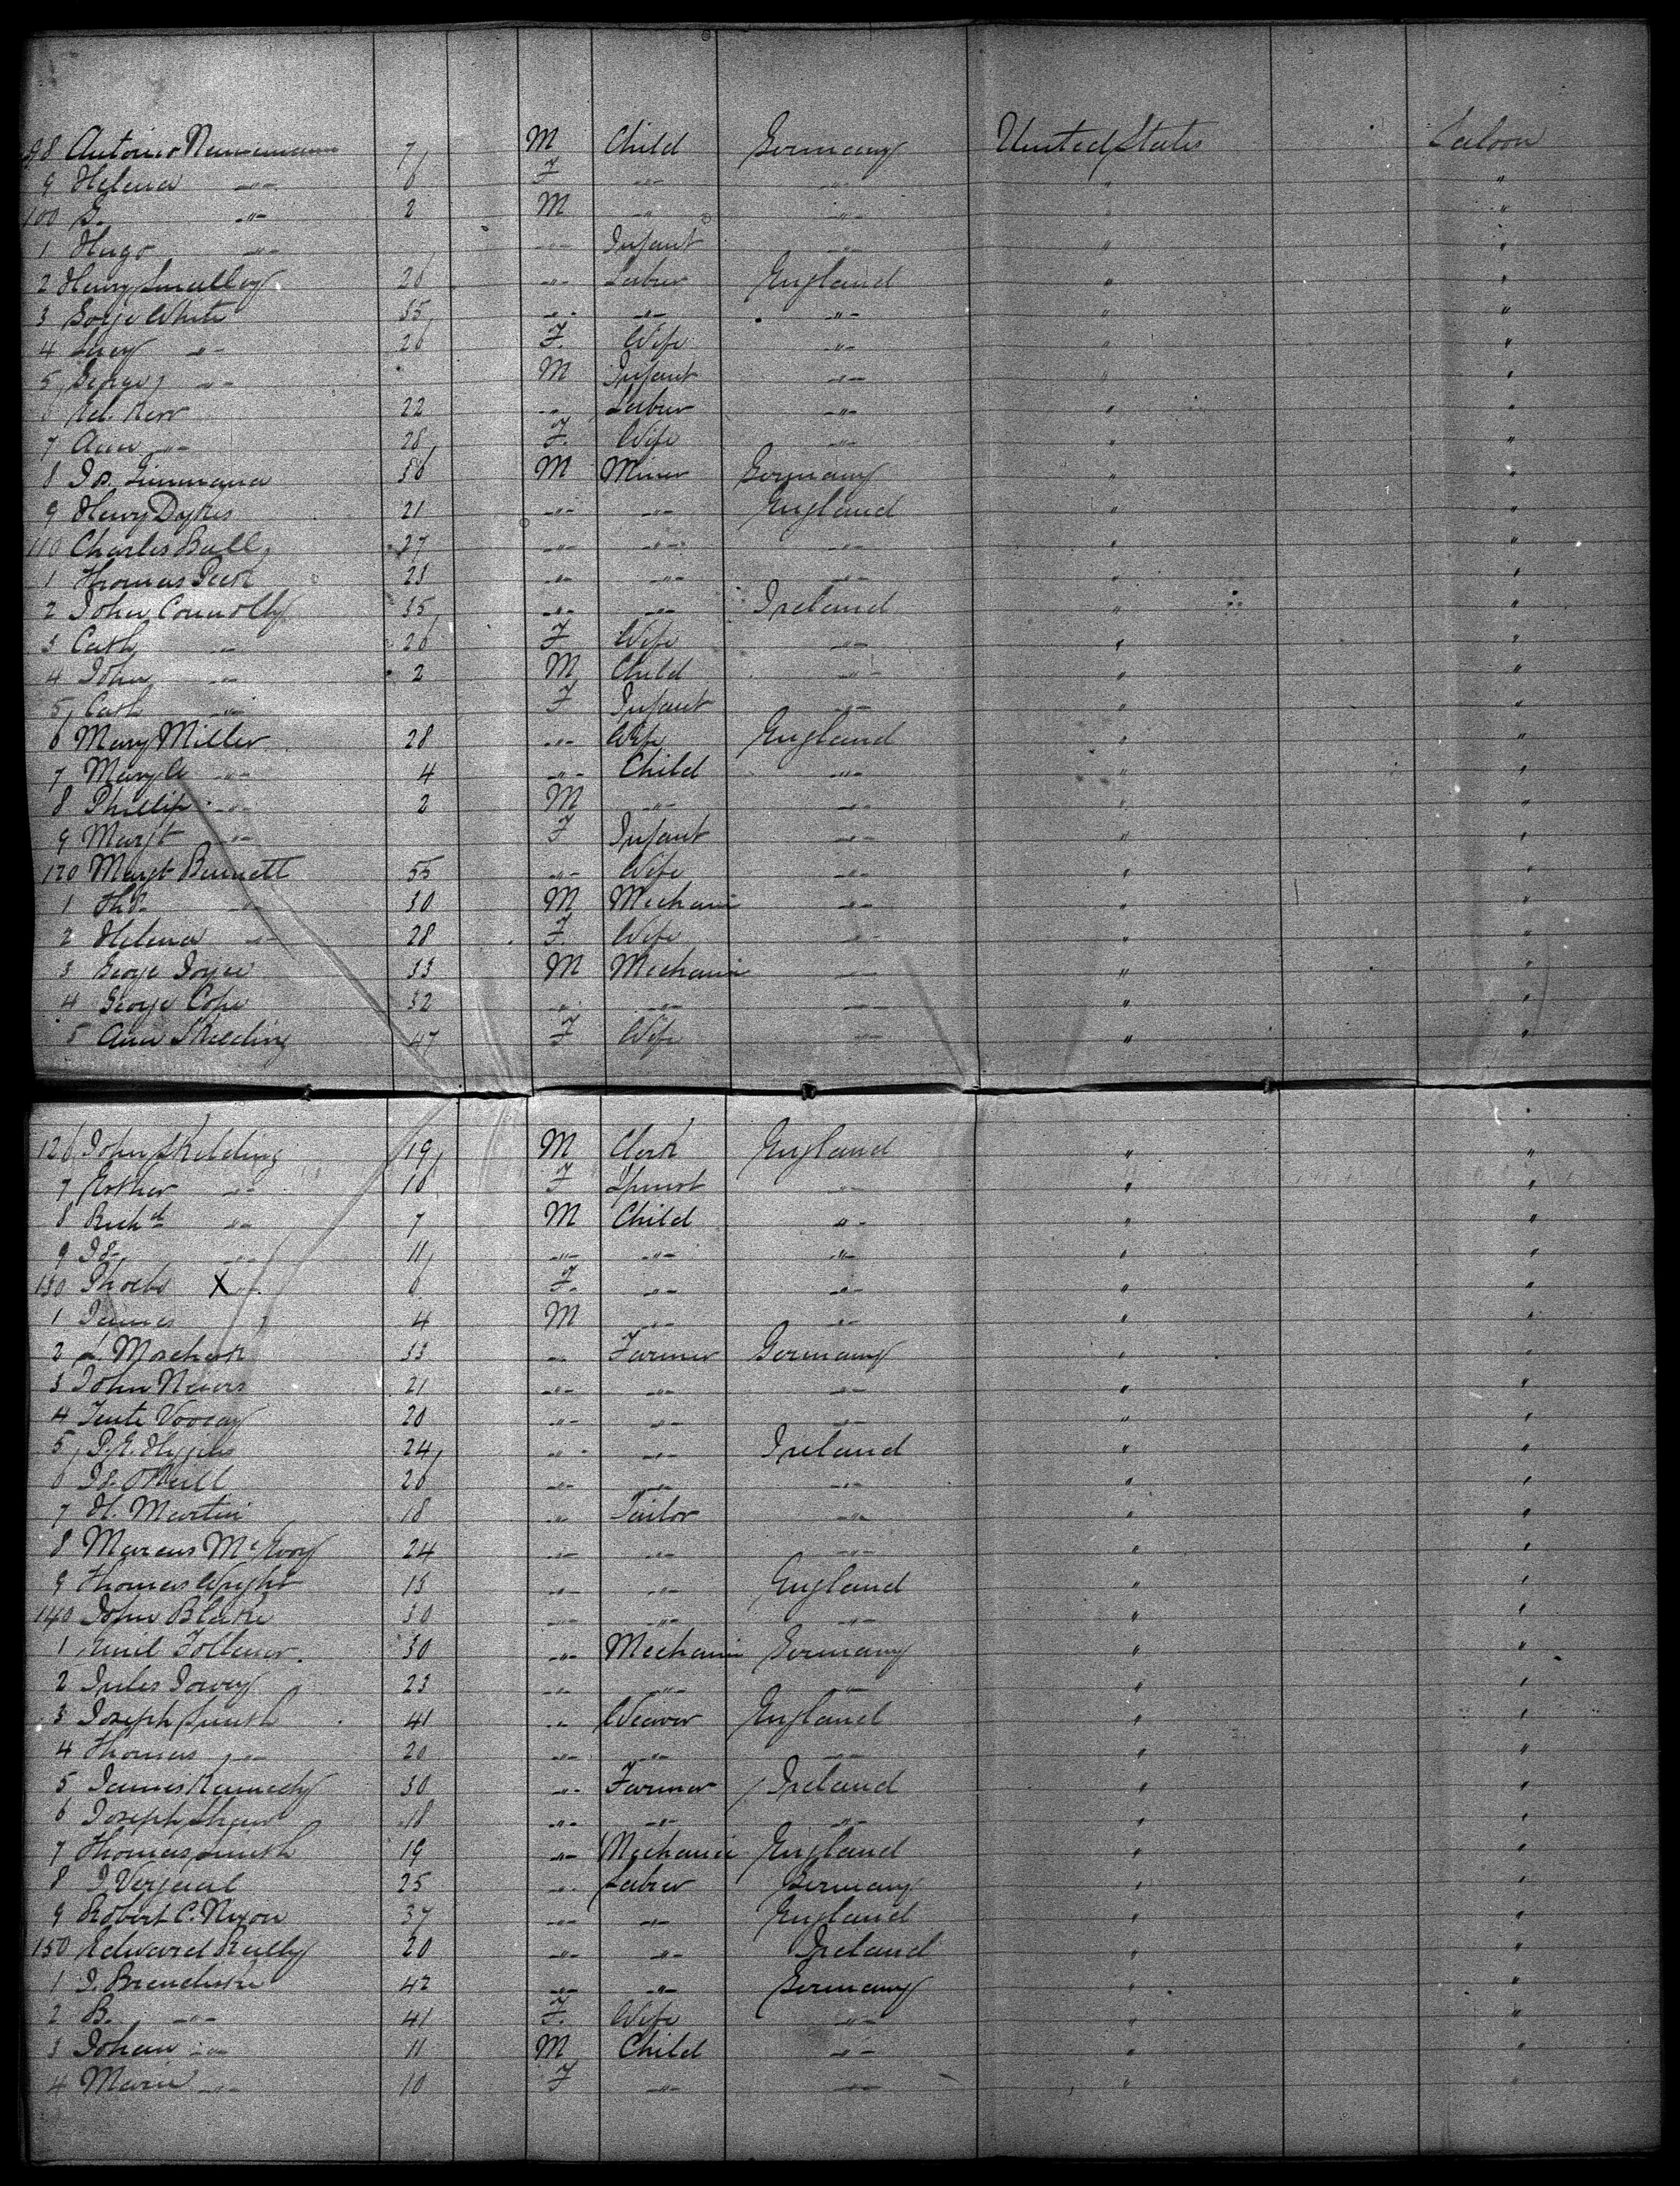 98 Antonio Neumann 7 M Child Germany United States Saloon
9 Helena -"- 6 F -"- -"- " "
100 G. -"- 2 M -"- -"- " "
1 Hugo -"- -"- Infant -"- " "
2 Henry Smalley 26 -"- Labrer England " "
3 Geoge White 35 -"- -"- -"- " "
4 Lucy -"- 26 F. Wife -"- " "
5 George -"- M Infant -"- " "
6 Ed. Kerr 22 -"- Labrer -"- " "
7 Ann -"- 28 F. Wife -"- " "
8 Js. 36 M Miner Germany " "
9 Henry Dykes 21 -"- -"- England " "
110 Charles Ball 27 -"- -"- -"- " "
1 Thomas Peek 23 -"- -"- -"- " "
2 John Connolly 35 -"- -"- Ireland " "
3 Cath -"- 26 F Wife -"- " "
4 John -"- 2 M Child -"- " "
5 Cath -"- F Infant -"- " "
6 Mary Miller 28 -"- Wife England " "
7 Mary A -"- 4 -"- Child -"- " "
8 Phillip -"- 2 M -"- -"- " "
9 Margt -"- F Infant -"- " "
120 Margt Bennett 55 -"- Wife -"- " "
1 Ths. -"- 30 M Mechani -"- " "
2 Helena -"- 28 F. Wife -"- " "
3 Geoge Joyce 33 M Mechanic -"- " "
4 George Cope 32 -"- -"- -"- " "
5 Ann Skelding 47 F Wife -"- " "
126 John Skelding 19 M Clerk England " "
7 Esther -"- 16 F Spinst -"- " "
8 Richd -"- 7 M Child -"- " "
9 Js. -"- 11 -"- -"- -"- " "
130 Phoebe X -"- 6 F. -"- -"- " "
1 James 4 M -"- -"- " "
2 L. Moschek 33 -"- Farmer Germany " "
3 John Neiers 21 -"- -"- -"- " "
4 20 -"- -"- -"- " "
5 P. E. 24 -"- -"- Ireland " "
6 Js. O'Neill 26 -"- -"- -"- " "
7 H. Martin 18 -"- Tailor -"- " "
8 Marcus McEvoy 24 -"- -"- -"- " "
9 Thomas Wright 13 -"- -"- England " "
140 John Blake 30 -"- -"- -"- " "
1 Emil Follener. 30 -"- Mechani Germany " "
2 Jules Jowey 23 -"- -"- -"- " "
3 Joseph Smith 41 -"- Weaver England " "
4 Thomas -"- 20 -"- -"- -"- " "
5 James Kennedy 30 -"- Farmer Ireland " "
6 Joseph Shaw 18 -"- -"- -"- " "
7 Thomas Smith 19 -"- Mechanic England " "
8 J. 25 -"- Labrer Germany " "
9 Robert C. Nixon 37 -"- -"- England " "
150 Edward Reilly 20 -"- -"- Ireland " "
1 J. 42 -"- -"- Germany " "
2 B. -"- 41 F. Wife -"- " "
3 Johan -"- 11 M Child -"- " "
4 Marie -"- 10 F -"- -"- " "